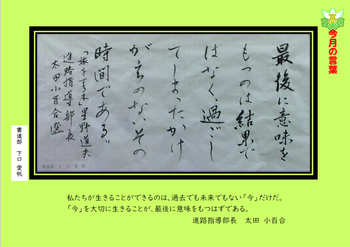 今月の言葉
最後に意味を
もつのは結果で
はなく、過ごし
てしまったかけ
がえのないその
時間である。
「旅をする木」星野道夫
進路指導部長
太田小百合選
書道部 下口 愛帆
私たちが生きることができるのは、過去でも未来でもない「今」だけだ。
「今」を大切に生きることが、最後に意味をもつはずである。
進路指導部長 太田 小百合